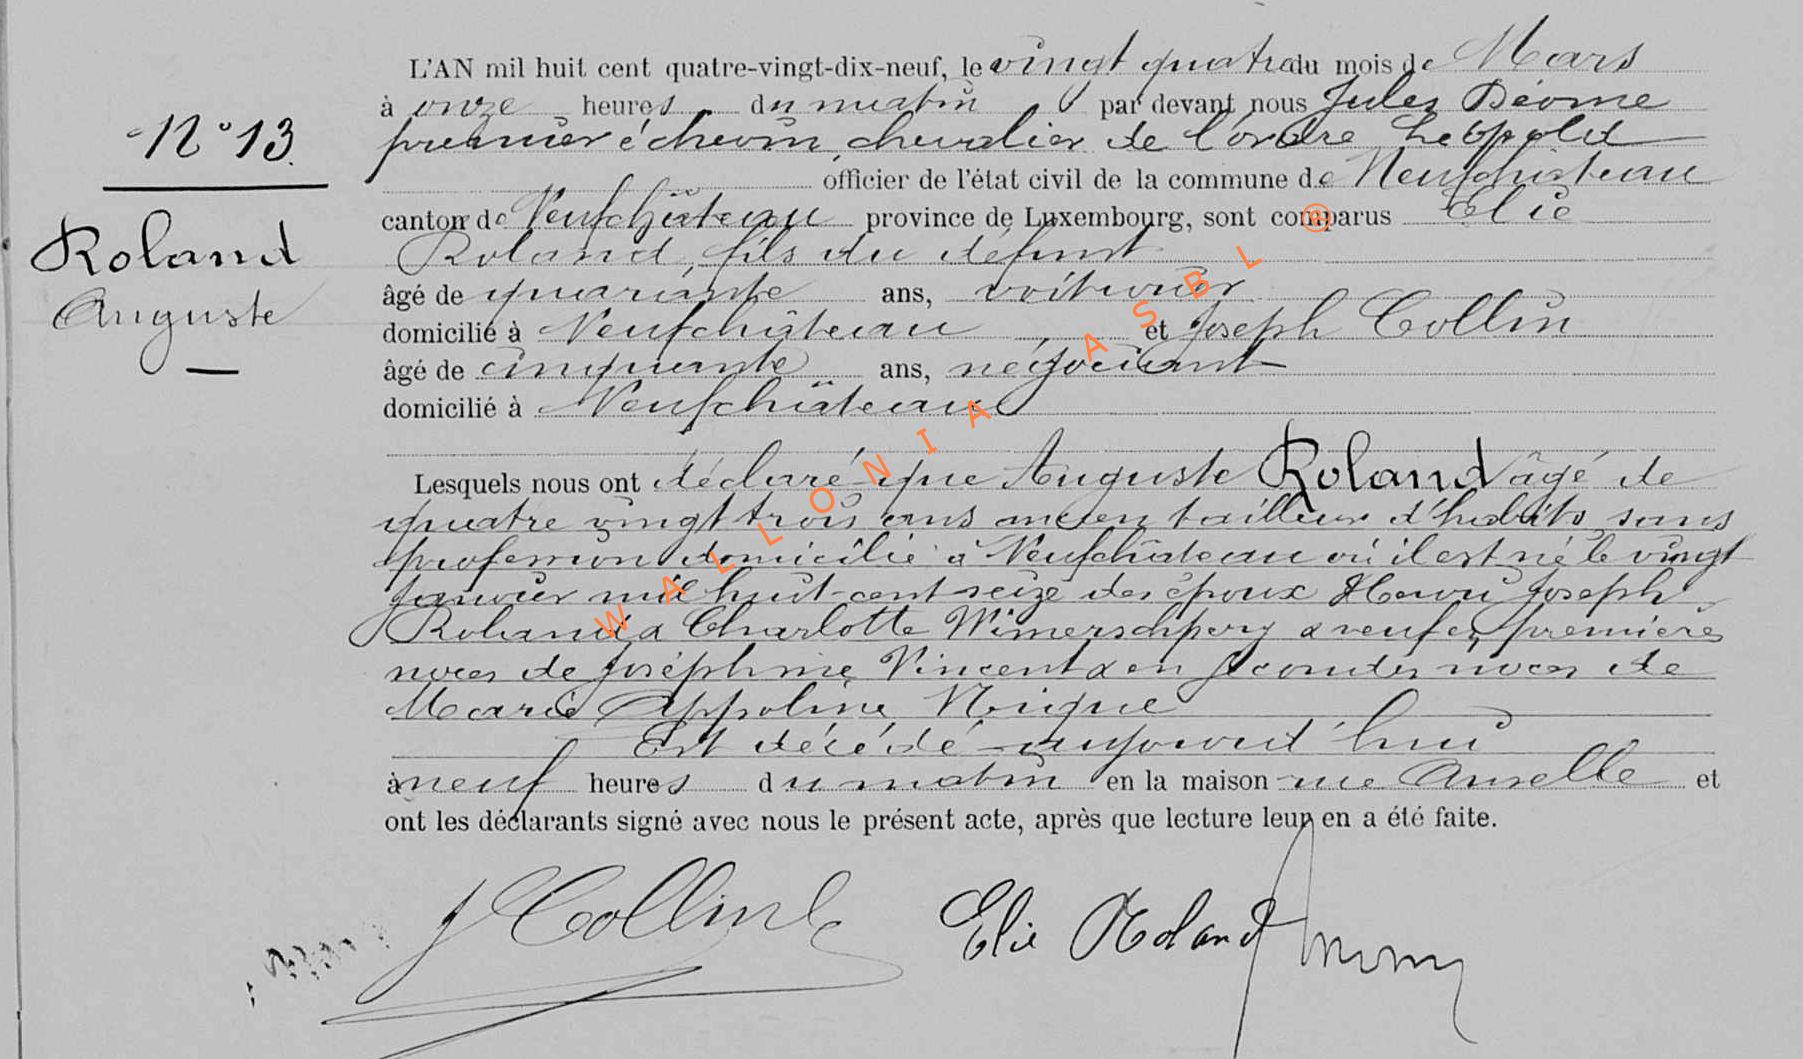 L'AN mil huit cent quatre-vingt-dix-neuf, le vingt quatre du mois de Mars
à onze heures du matin par devant nous Jules Déome
premier échevin, chevalier de l'ordre Léopold
officier de l'état civil de la commune de Neufchâteau
canton de Neufchâteau province de Luxembourg, sont comparus Elie
Roland, fils du défunt
âgé de quarante ans, voiturier
domicilié à Neufchâteau et Joseph Collin
âgé de cinquante ans, négociant
domicilié à Neufchâteau
N° 13
Roland
Auguste
Lesquels nous ont déclaré que Auguste Roland âgé de
quatre vingt trois ans ancien tailleur d'habits sans
profession domicilié à Neufchâteau où il est né le vingt
janvier mil huit-cent-seize des époux Henri Joseph
Roland & Charlotte & veuf en premières
noces de Joséphine Vincent & en secondes noces de
Marie Appoline Noique
Est décédé aujourd'hui
à neuf heures du matin en la maison rue et
ont les déclarants signé avec nous le présent acte, après que lecture leur en a été faite.
J Collin Elie Roland
WALLONIA ASBL ®